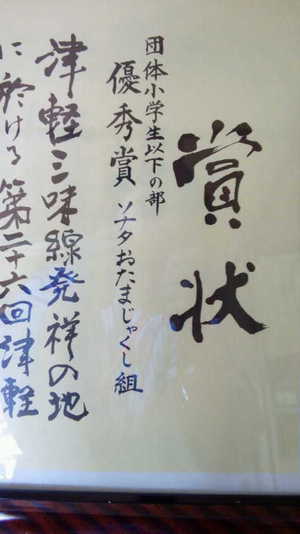 賞状
団体小学生以下の部
優秀賞 ソナタおたまじゃくし組
津軽三味線発祥の地
に於ける第二十六回津軽